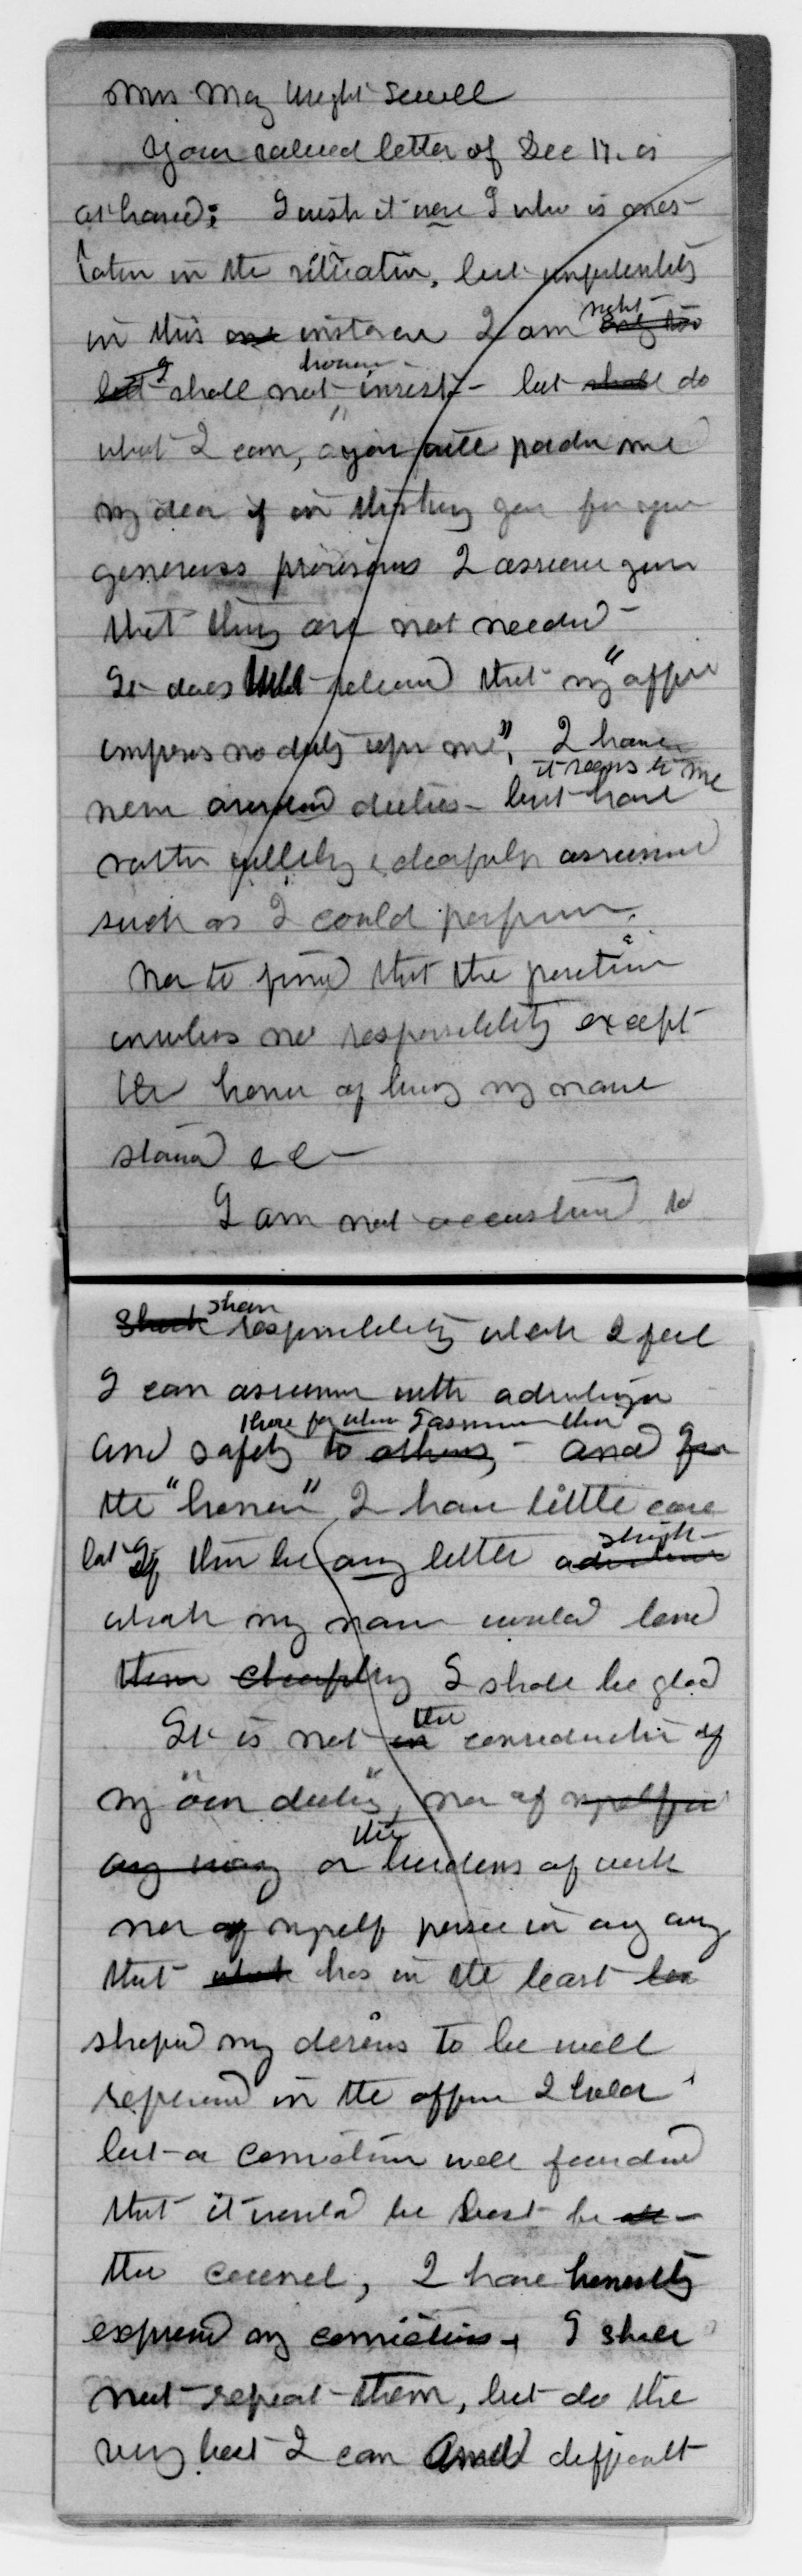 Mrs May Wright Sewell
Your valued letter of Dec 17. is
at hand; I wish it were I who is mis-
taken in the situation, but
in this one instance I am right only too
but I shall not however insist - but shall do
what I can, & you will pardon me
my dear if in thanking you for your
generous provisions I assure you
that they are not needed -
It does not please that my "office
imposes no duty upon me", I have
it seems to me
never avoided duties - but have
rather willingly & cheerfully assumed
such as I could perform.
Nor to find that the position
involves no responsibility except
the honor of having my name
stand &c -
I am not accustomed to
shirk share responsibility which I feel
I can assume with advantage
those for whom I assume them
and safety to others, - and for
the "honor" I have little care
but If there be any little strength
which my name would lend
them cheaply I shall be glad
It is not in the consideration of
my "own duties", nor of myself in
any way or the burdens of work
nor of myself per se in any way
that which has in the least
shaped my desires to be well
in the office I hold
but a conviction well founded
that it would be best for
the council, I have honestly
expressed my convictions, I shall
not repeat them, but do the
very best I can Amid difficult